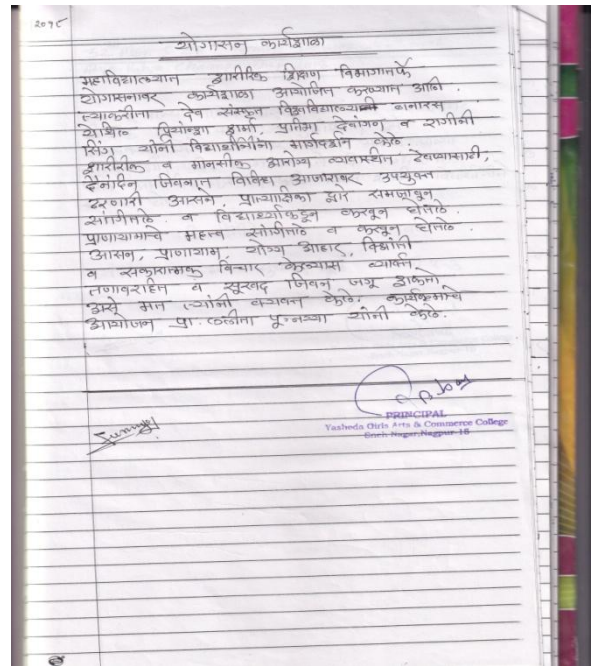 २०१८
योगासन कार्यशाळा
महाविद्यालयात शारीरिक शिक्षण विभागातर्फे
योगासनावर कार्यशाळा आयोजित करण्यात आली.
त्याकरीता देव संस्कृत विश्वविद्यालय बनारस
येथिल प्रियांन्का शर्मा, प्रतिमा देवांगण व रागीनी
सिंग यांनी विद्यार्थीनींना मार्गदर्शन केले.
शारीरिक व मानसीक आरोग्य व्यवस्थीत ठेवण्यासाठी,
दैनंदिन जिवनात विविध आजारावर उपयुक्त
ठरणारी आसने, प्रात्यक्षिका द्वारे समजावून
सांगीतले. व विद्यार्थ्यांकडून करवून घेतले.
प्राणायामाचे महत्त्व सांगीतले व करवून घेतले.
आसन, प्राणायाम, योग्य आहार, विश्रांती
व सकारात्मक विचार केल्यास व्यक्ति
तणावरहित व सुखद जिवन जगू शकतो
असे मत त्यांनी व्यक्त केले. कार्यक्रमाचे
आयोजन प्रा. ललीता पून्नय्या यांनी केले.
PRINCIPAL
Yashoda Girls Arts & Commerce College
Sneh Nagar, Nagpur-15